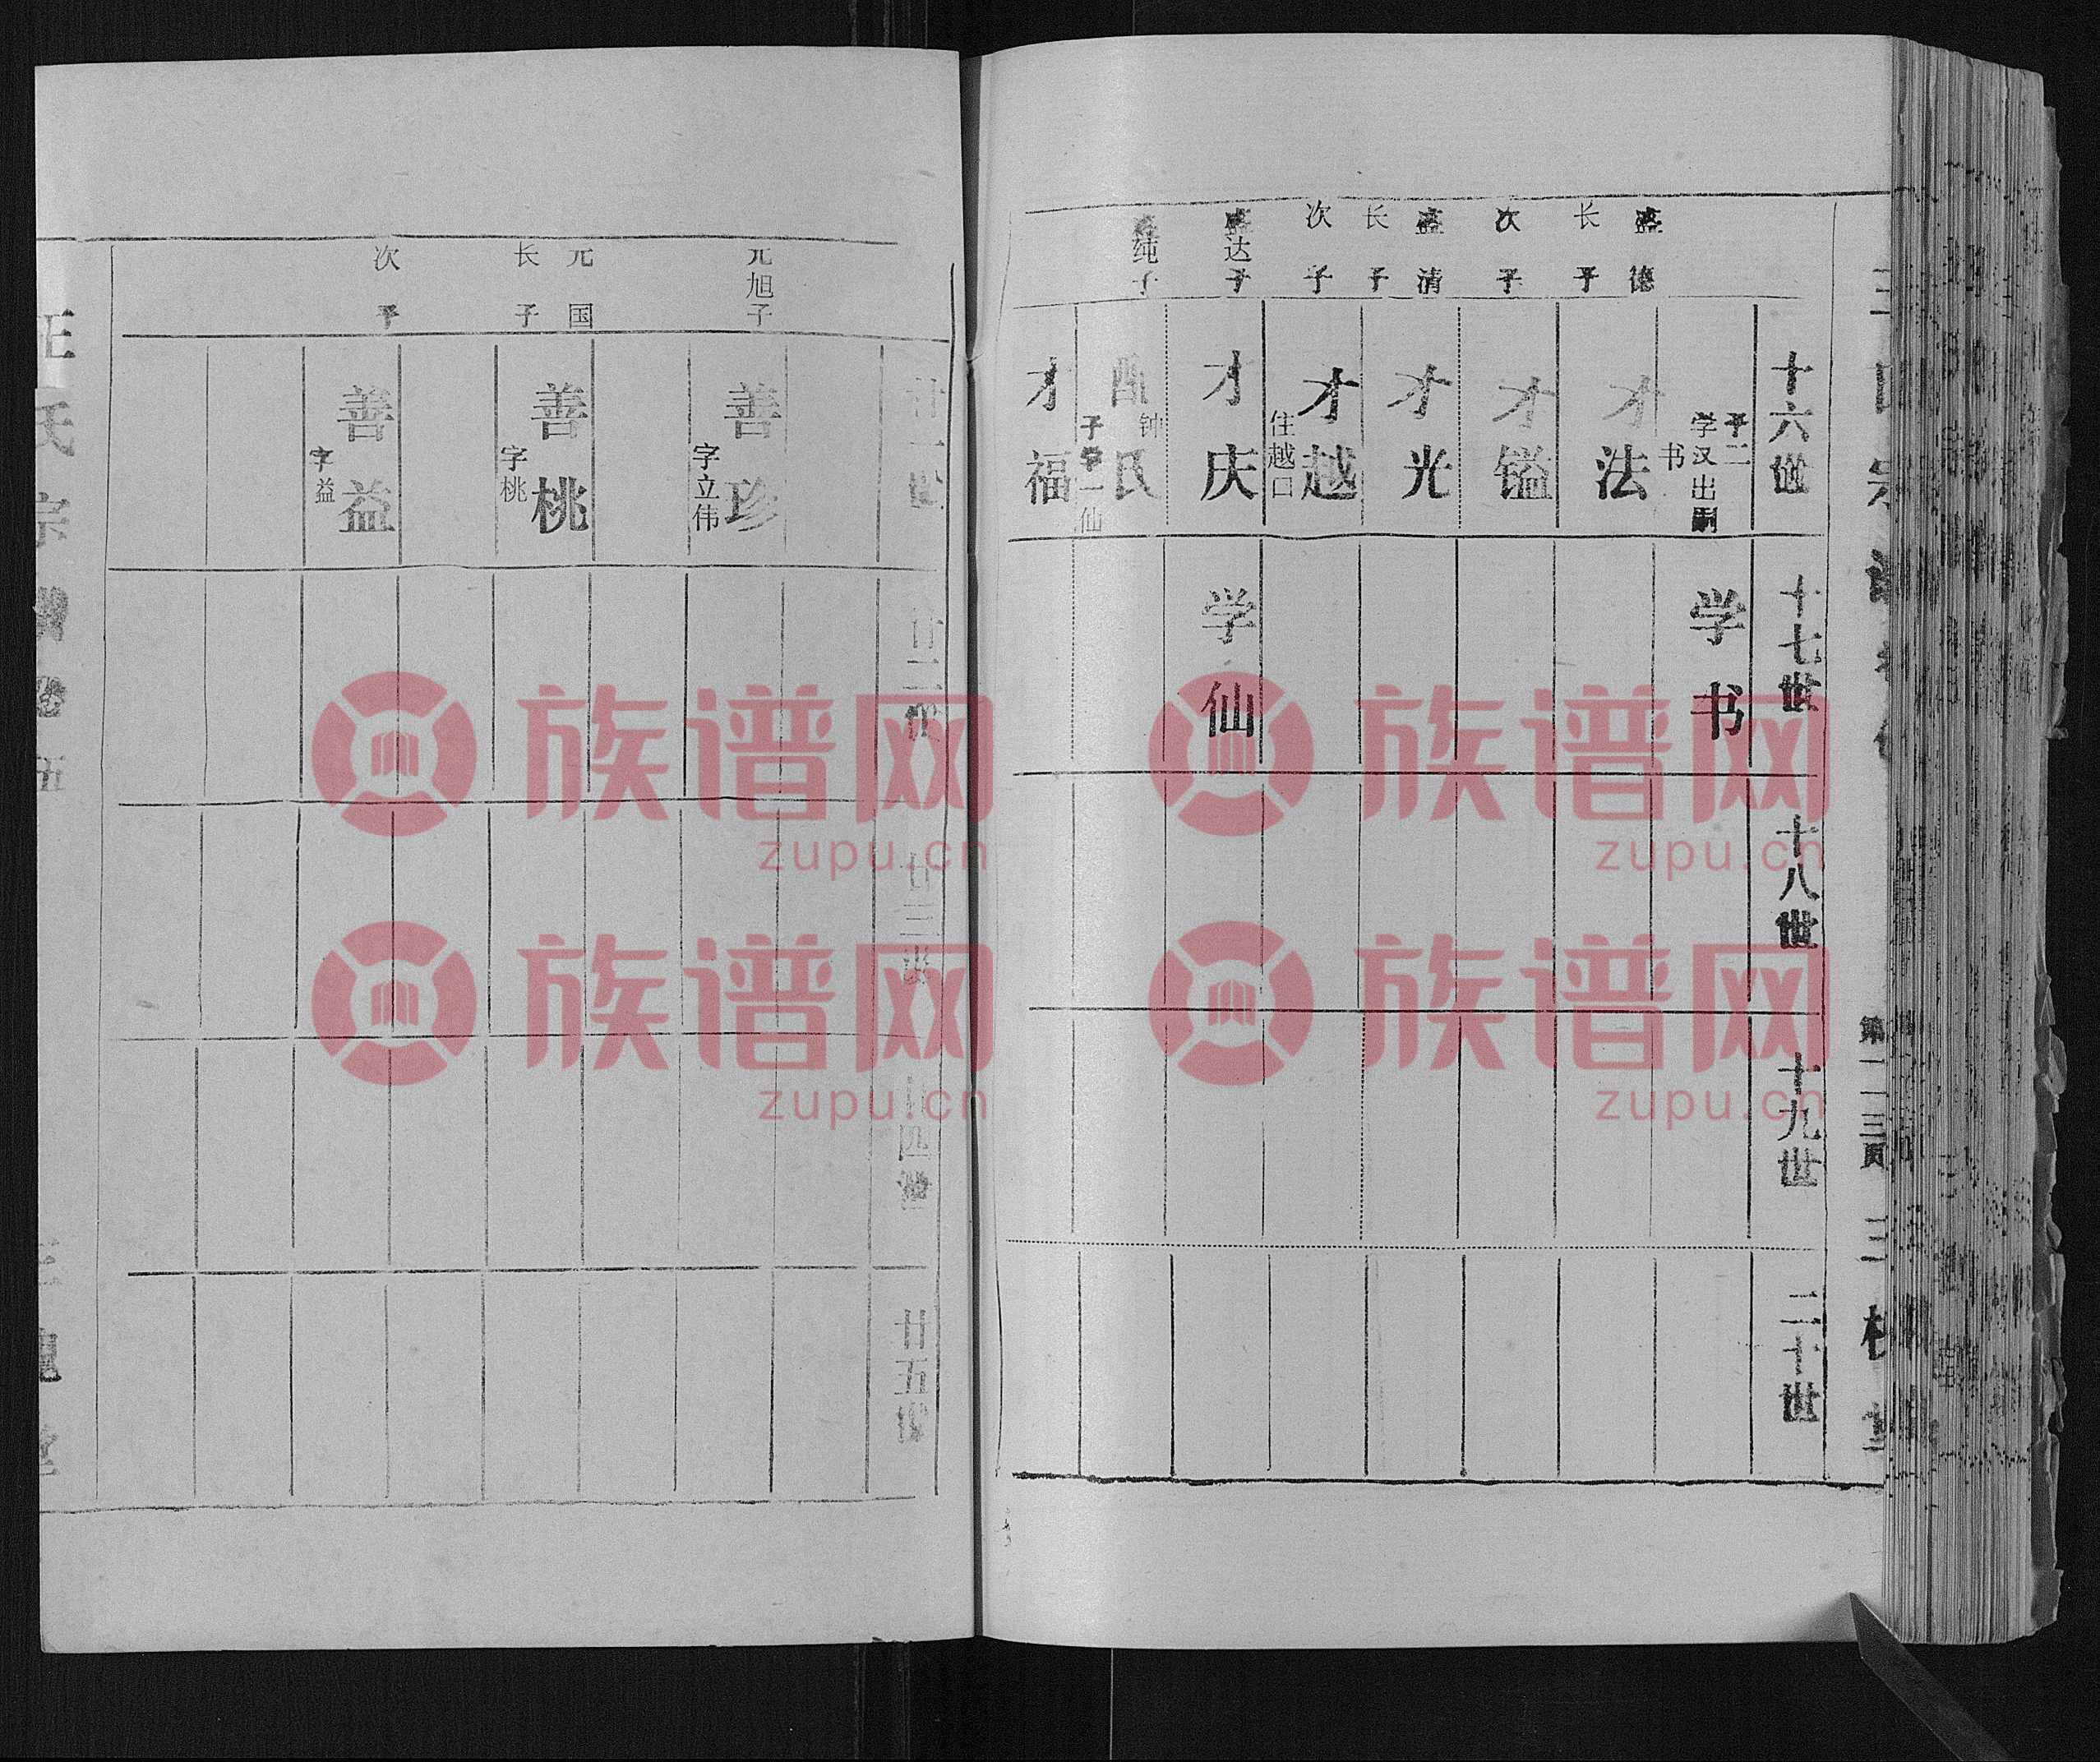 十六世
十七世
十八世
十九世
二十世
子二
学汉出嗣
书
学书
盛德
长子
才法
次子
才镒
盛清
长子
才光
次子
才越
住越口
盛达子
才庆
学仙
配钟氏
子学仙
盛纯子
才福
第一一三页
廿一世
廿二世
廿三世
廿四世
廿五世
元旭子
善珍
字立伟
元国
长子
善桃
字桃
次子
善益
字益
氏宗
卷五
族谱网
zupu.cn
族谱网
zupu.cn
族谱网
zupu.cn
族谱网
zupu.cn